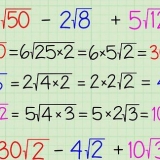 √50 - 2√8 + 5√12
0=6√25×2=6×5√2=30
=2√4×2=2×2√2=4
=5√4×3=5×2√3=10
30√2 - 4√2 + 10√3